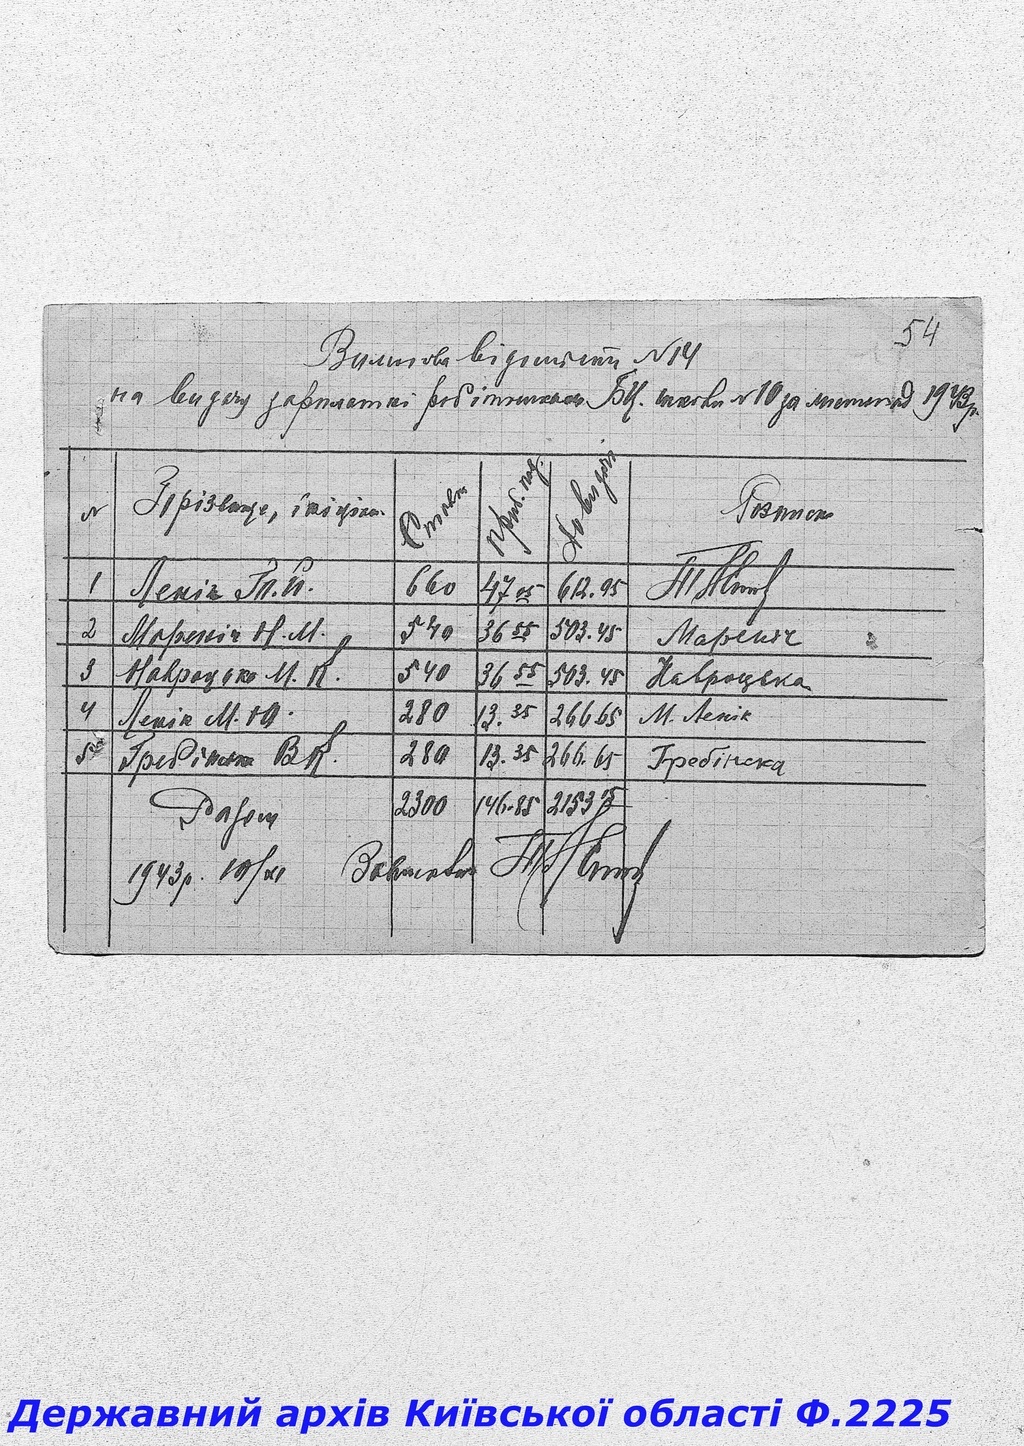 54
Виплатна відомість №14
на видачу зарплатні робітникам БЦ. школи №10 за листопад 1943р.
№ Прізвище, ініціали Ставка приб. под. До видачі Розписка
1 Лепік 660 47 05 612.95
2 Маренич Н.М. 540 36 55 503.45 Маренич
3 Навроцька М. К. 540 36 55 503.45 Навроцька
4 Лепік М. Ю. 280 13.35 266.65 М. Лепік
5 Гребінська В К. 280 13.35 266.65 Гребінска
Разом 2300 146.85 2153 15
1943р. 10/XI Зав. школи
Державний архів Київської області Ф.2225